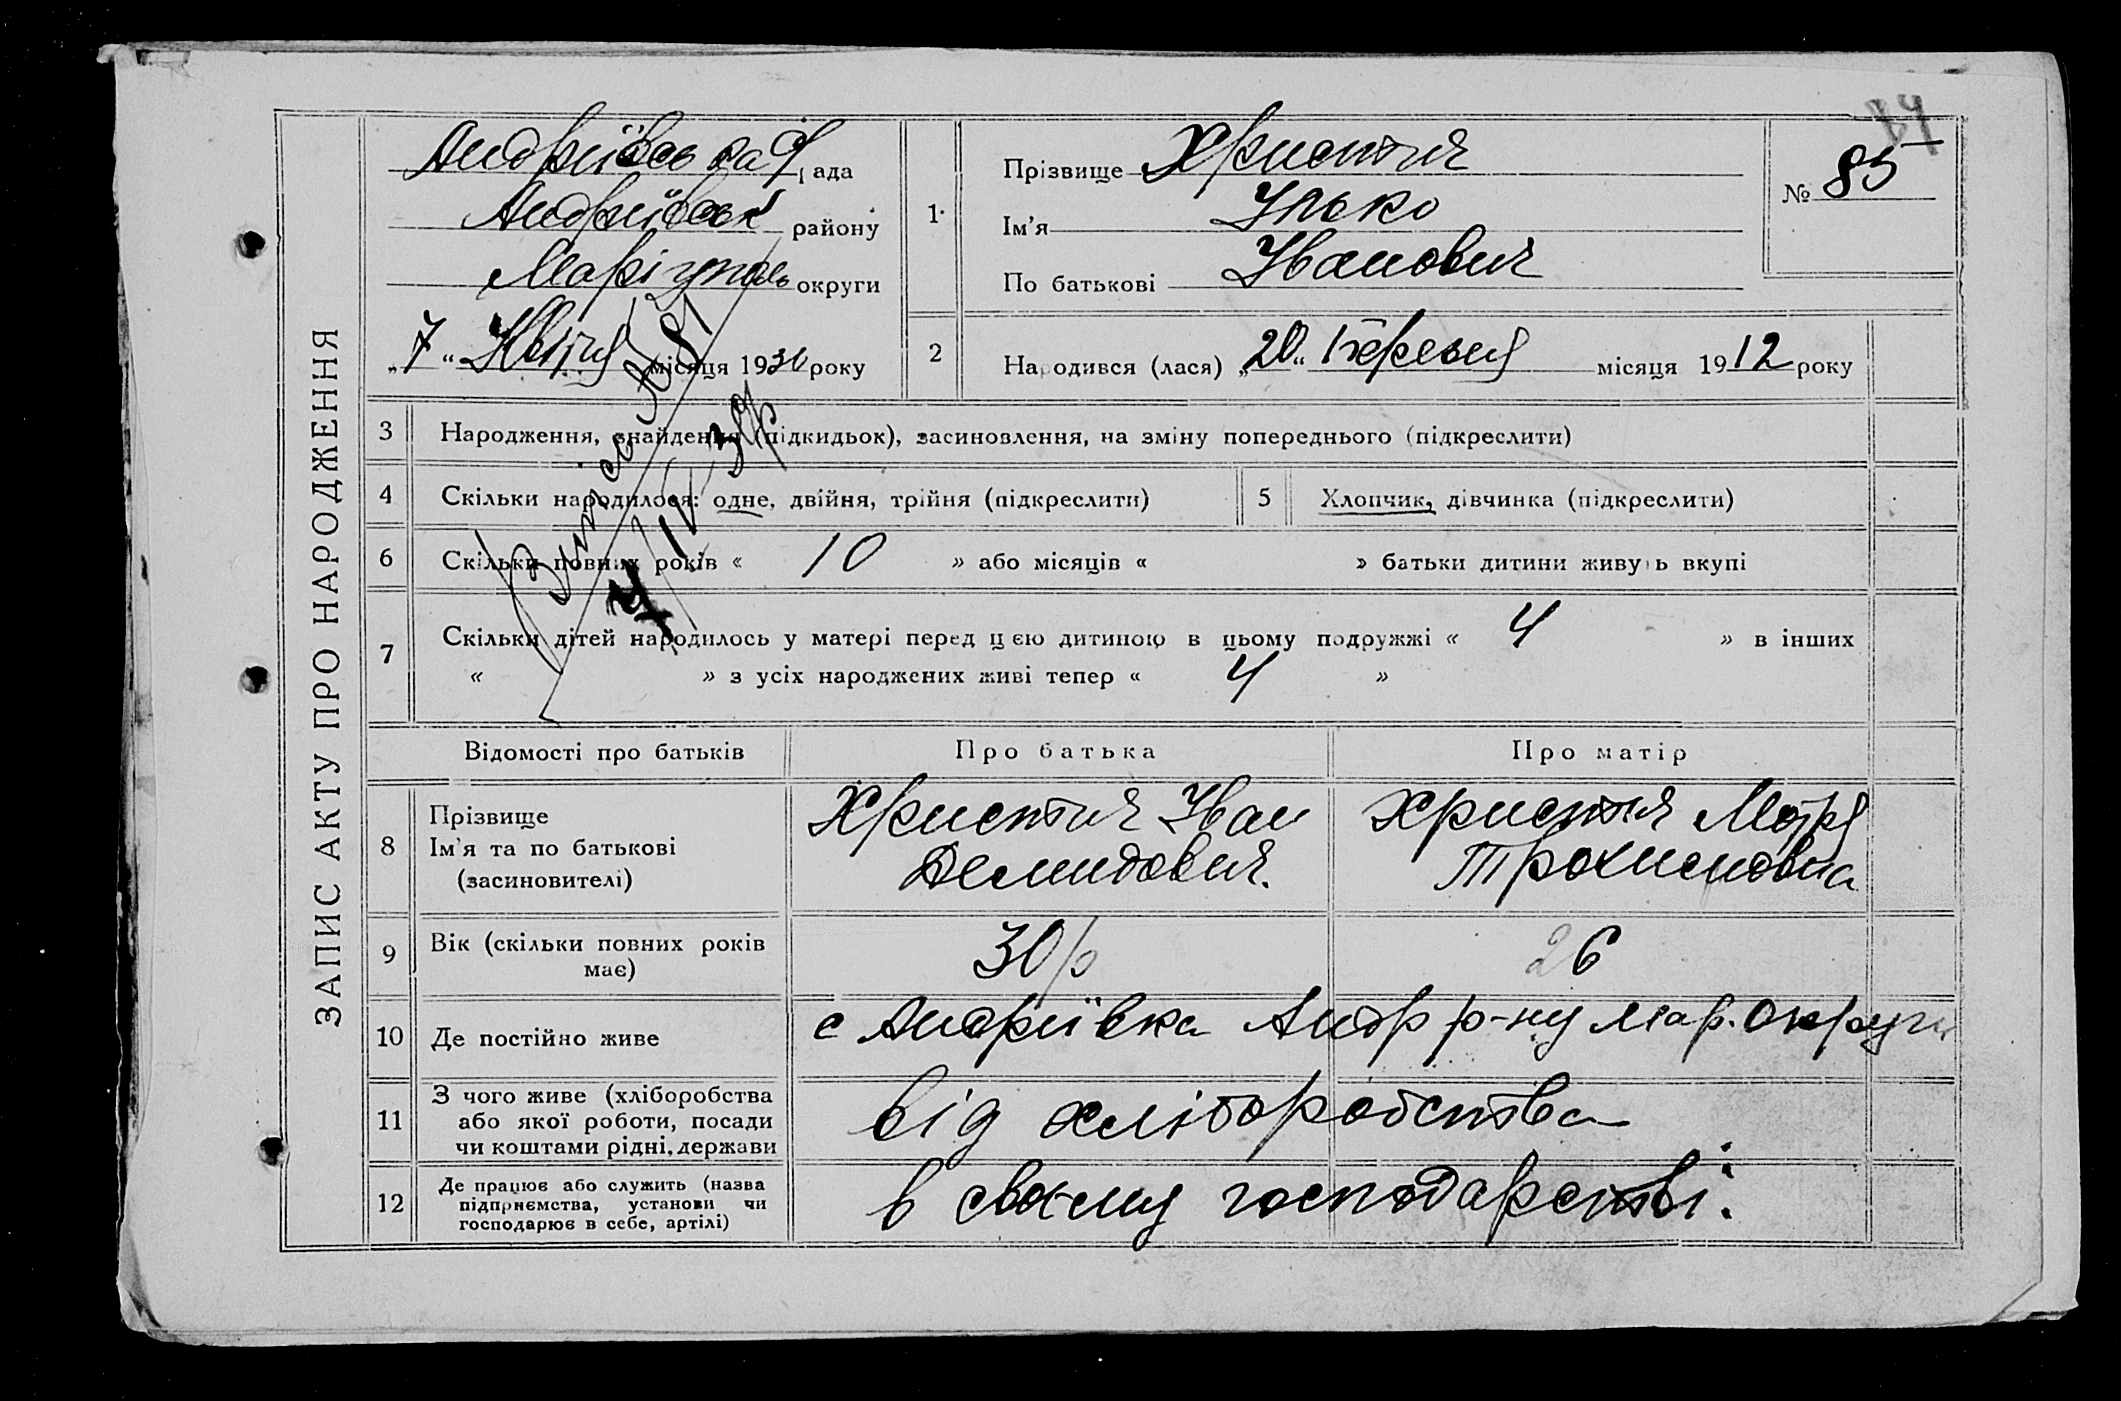 ЗАПИС АКТУ ПРО НАРОДЖЕННЯ
Андриївська рада
Андриївськ району
Маріуполь округи
„7“ Квітня місяця 1930 року
1. Прізвище Християн
Ім'я Ілько
По батькові Іванович
№ 85
2 Народився (лася) „20“ березня місяця 1912 року
3 Народження, знайдення (підкидьок), засиновлення, на зміну попереднього (підкреслити)
4 Скільки народилося: одне, двійня, трійня (підкреслити)
5 Хлопчик, дівчинка (підкреслити)
6 Скільки повних років « 10 » або місяців « » батьки дитини живуть вкупі
7 Скільки дітей народилось у матері перед цією дитиною в цьому подружжі « 4 » в інших
« » з усіх народжених живі тепер « 4 »
Відомості про батьків
Про батька
Про матір
8 Прізвище
Ім'я та по батькові
(засиновителі)
Християн Іван
Демидович.
Християн
9 Вік (скільки повних років
має)
30
26
10 Де постійно живе
с Андріївка Андр р-ну Мар. Округи
11 З чого живе (хліборобства
або якої роботи, посади
чи коштами рідні, держави
від хліборобства
12 Де працює або служить (назва
підприємства, установи чи
господарює в себе, артілі)
в своєму господарстві.